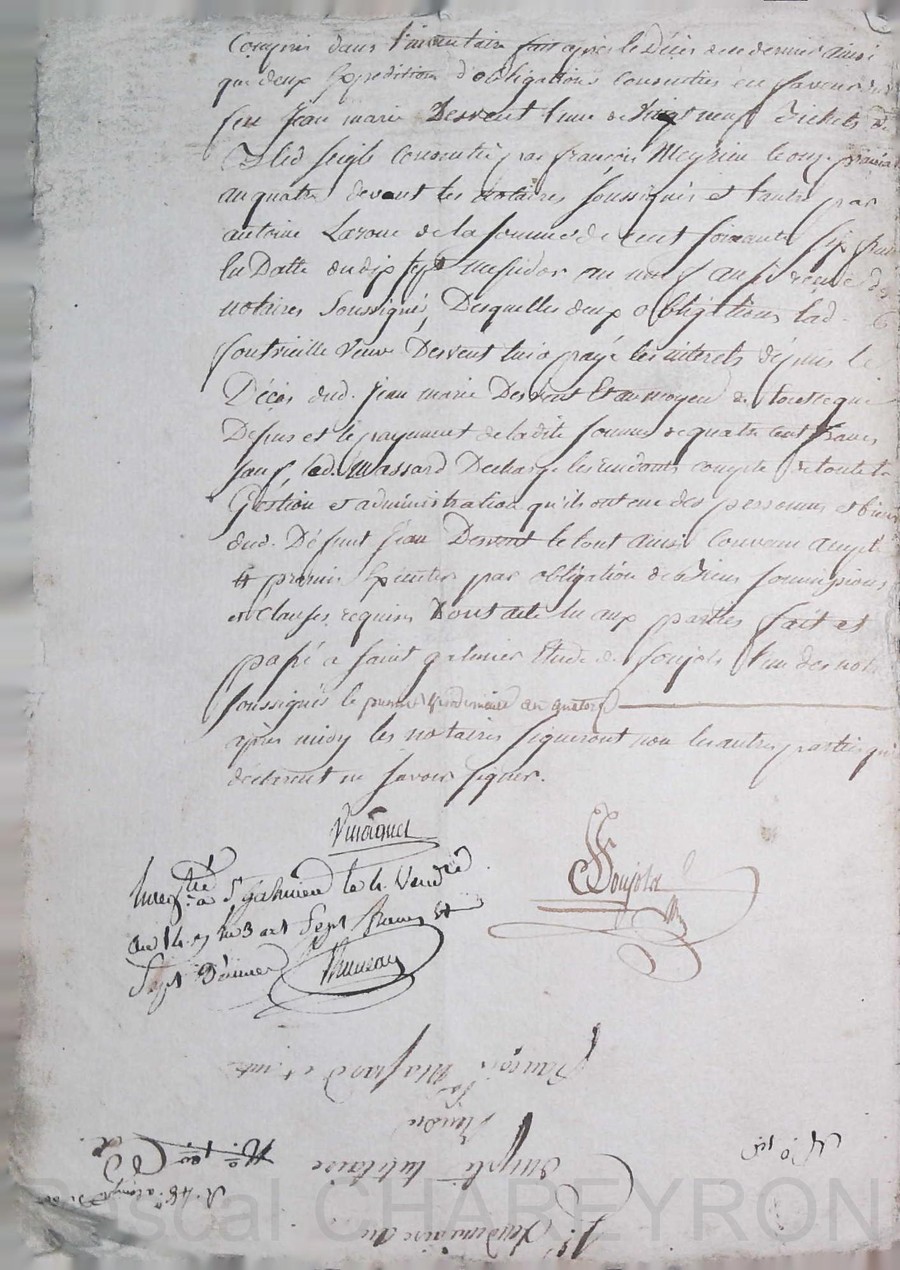 Compris dans l'inventaire fait après le Décès de ce dernier ainsi
que deux Expeditions d'obligations Consenties en faveur du
feu Jean marie Desvent l'une de Vingt neuf Bichets
Bled seigle Consentie par françois Meyrieu le onze prairial
an quatre devant les notaires soussignés et l'autre par
antoine Laroue de la somme de cent soixante six francs
En Datte du dix sept messidor an neuf aussi recue des
notaires Soussignés, Desquelles deux obligations lad.
fontvieille Veuve Desvent lui a payé les interets depuis le
Décès dud. Jean marie Desvent Et au moyen de tout ce que
Dessus et le payement de ladite somme de quatre cent francs
sauf, led. Massard Decharge les rendants compte de toute la
Gestion et administration qu'ils ont eue des personnes et biens
dud. Défunt Jean Desvent le tout ainsi Convenu accepté
et promis Executer par obligation de biens soumissions
et Clauses, requises Dont acte lu aux parties fait et
passé a saint galmier Etude de Soujols l'un des not.
soussignés le premier Vendemiaire an quatorze
après midy les notaires signeront non les autres parties qui
déclarent ne savoir signer.
Soujols
Enregistré à St. Galmier le 4 Vend.re
an 14. Sept francs et
Sept Décimes
françois Massard
Rendre
Compte tutelaire
1er Vendemiaire an
Pascal CHAREYRON